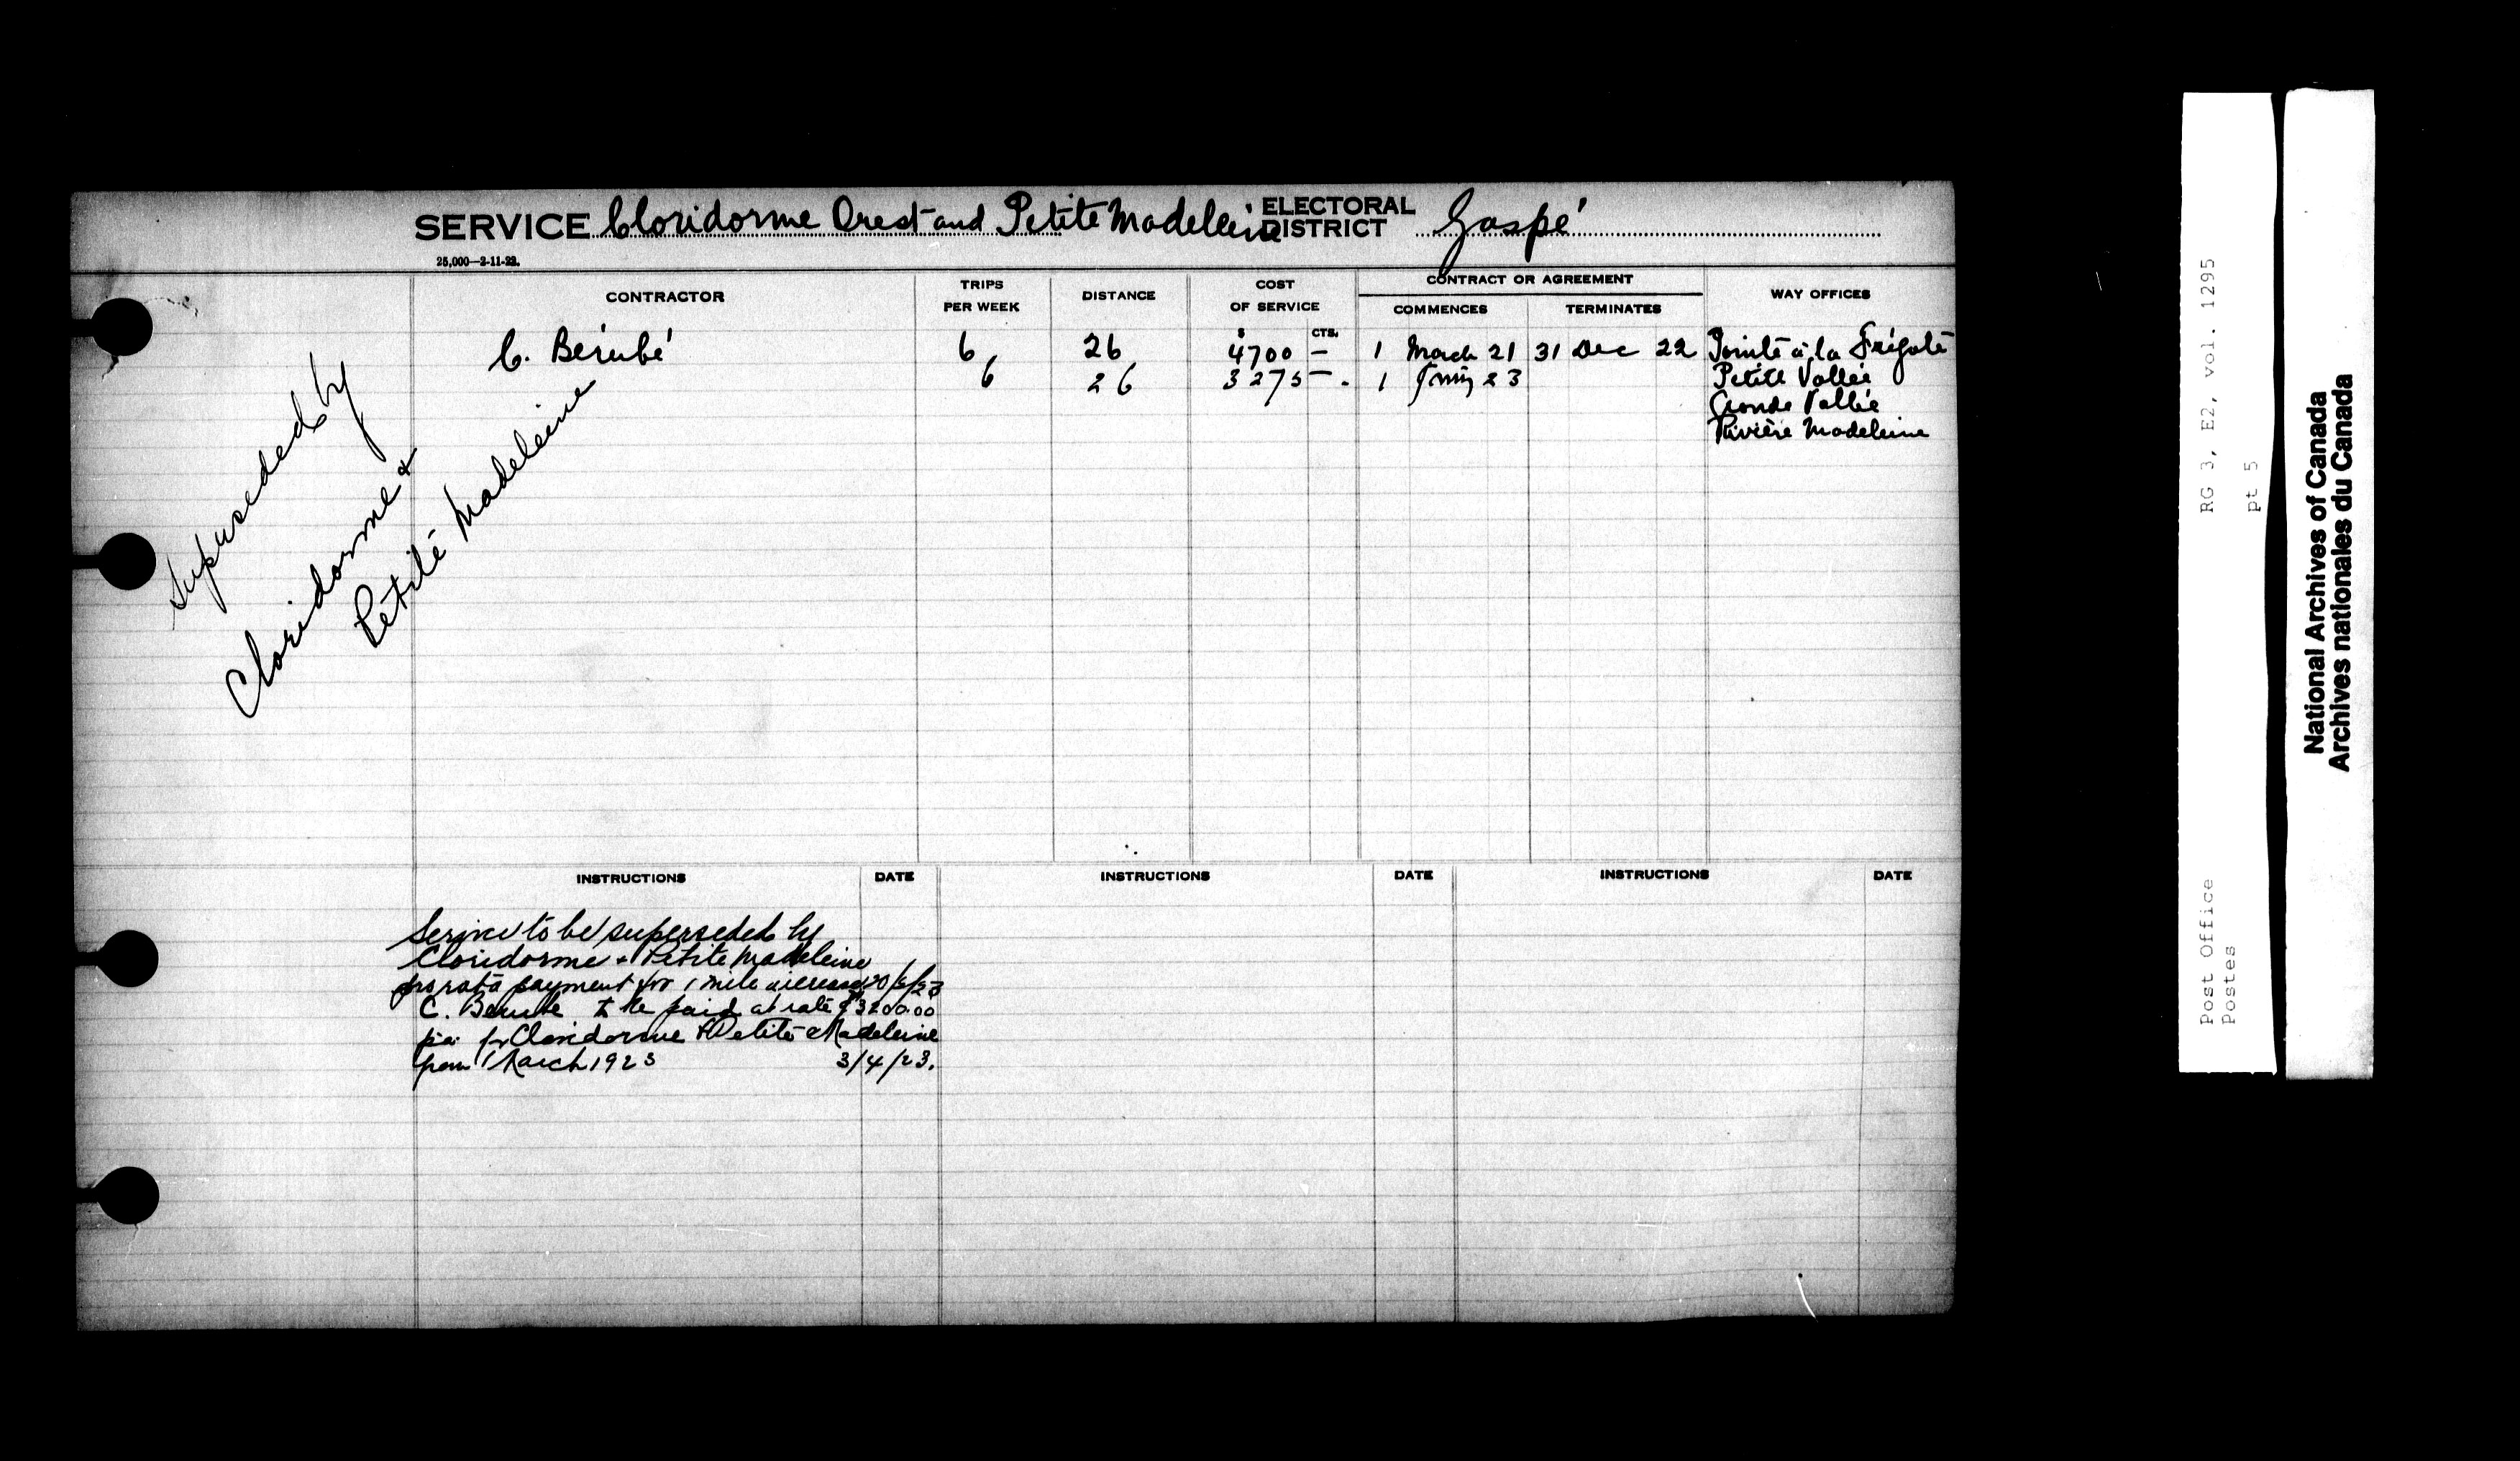 SERVICE Cloridorme Ouest and Petite Madeleine ELECTORAL DISTRICT Gaspé
25,000—2-11-22.
CONTRACTOR TRIPS PER WEEK DISTANCE COST OF SERVICE CONTRACT OR AGREEMENT WAY OFFICES
COMMENCES TERMINATES
$ CTS.
C. Bérubé 6 26 4700 — 1 March 21 31 Dec 22 Pointe à la Frégate
6 26 3275 — 1 23 Petite Vallée
Grande Vallée
Rivière Madeleine
Superseded by
Cloridorme &
Petite Madeleine
INSTRUCTIONS DATE INSTRUCTIONS DATE INSTRUCTIONS DATE
Service to be superseded by
Cloridorme & Petite Madeleine
pro rata payment for 1 mile increase
C. Berube to be paid at rate $3200.00
p.a. for Cloridorme & Petite Madeleine
from 1 March 1923 3/4/23.
RG 3, E2, vol. 1295
pt 5
Post Office
Postes
National Archives of Canada
Archives nationales du Canada